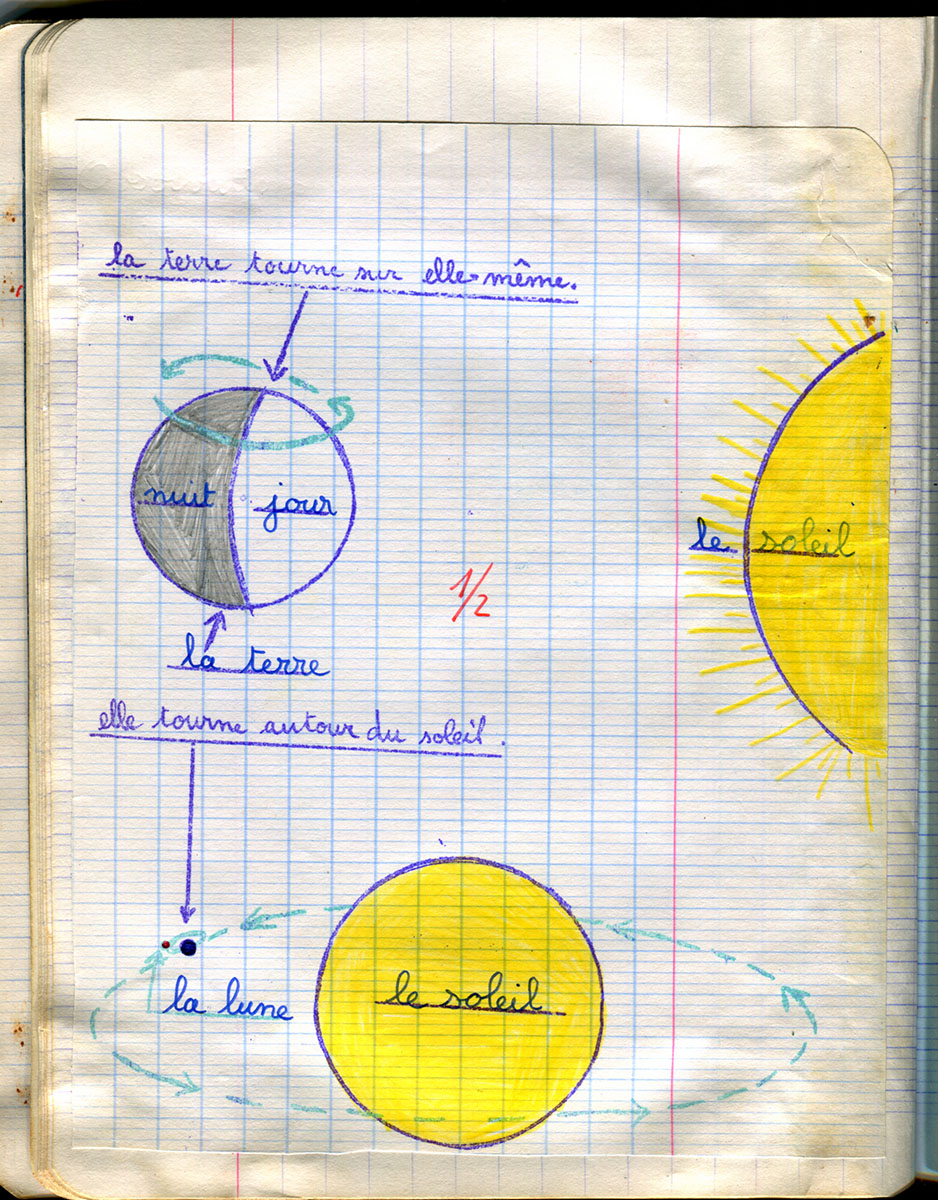 la terre tourne sur elle-même.
nuit
jour
le soleil
1/2
la terre
elle tourne autour du soleil.
la lune
le soleil